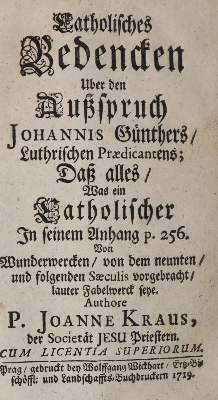 Catholisches
Bedencken
Uber den
Außspruch
JOHANNIS Günthers/
Luthrischen Prædicantens;
Daß alles/
Was ein
Catholischer
In seinem Anhang p. 256.
Von
Wunderwercken/ von dem neunten/
und folgenden Sæculis vorgebracht/
lauter Fabelwerck seye.
Authore
P. JOANNE KRAUS,
der Societät JESU Priestern.
CUM LICENTIA SUPERIORUM.
Prag/ gedruckt bey Wolffgang Wickhart/ Ertz-Bi-
schöffl: und Landschaffts-Buchdruckern 1719.